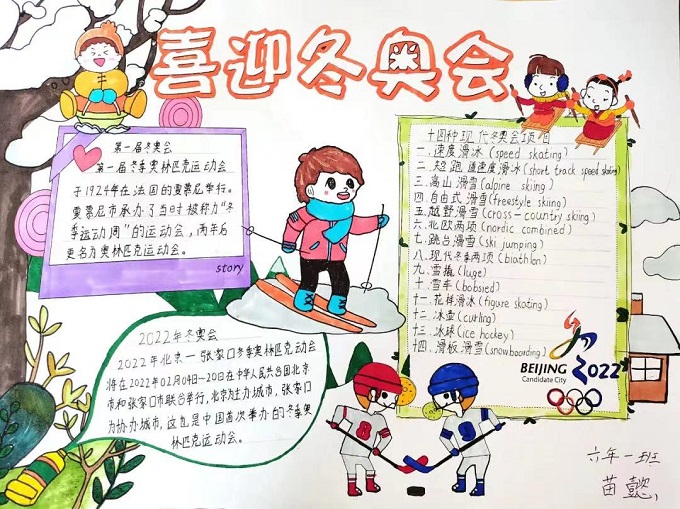 喜迎冬奥会
第一届冬奥会
第一届冬季奥林匹克运动会
于1924年在法国的夏蒙尼举行。
夏蒙尼市承办了当时被称为“冬
季运动周”的运动会，两年后
更名为奥林匹克运动会。
story
十四种现代冬奥会项目
一.速度滑冰(speed skating)
二.短跑道速度滑冰(short track speed skating)
三.高山滑雪(alpine skiing)
四.自由式滑雪(freestyle skiing)
五.越野滑雪(cross-country skiing)
六.北欧两项(nordic combined)
七.跳台滑雪(ski jumping)
八.现代冬季两项(biathlon)
九.雪橇(luge)
十.雪车(bobsied)
十一.花样滑冰(figure skating)
十二.冰壶(curling)
十三.冰球(ice hockey)
十四.滑板滑雪(snowboarding)
BEIJING 2022
Candidate City
2022年冬奥会
2022年北京一张家口冬季奥林匹克运动会
将在2022年02月04日~20日在中华人民共和国北京
市和张家口市联合举行，北京为主办城市，张家口
为协办城市，这也是中国首次举办的冬季奥
林匹克运动会。
8
8
六年一班
苗懿